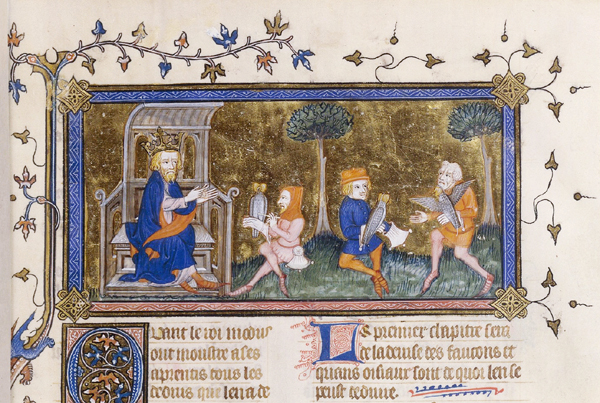 Quant le roi modus
out moustre a ses
aprentis tous les
deduis que len a de
Le premier chapitre sera
de la deuise des faucons et
quans oisiaus sont de quoi len se
peust deduire.